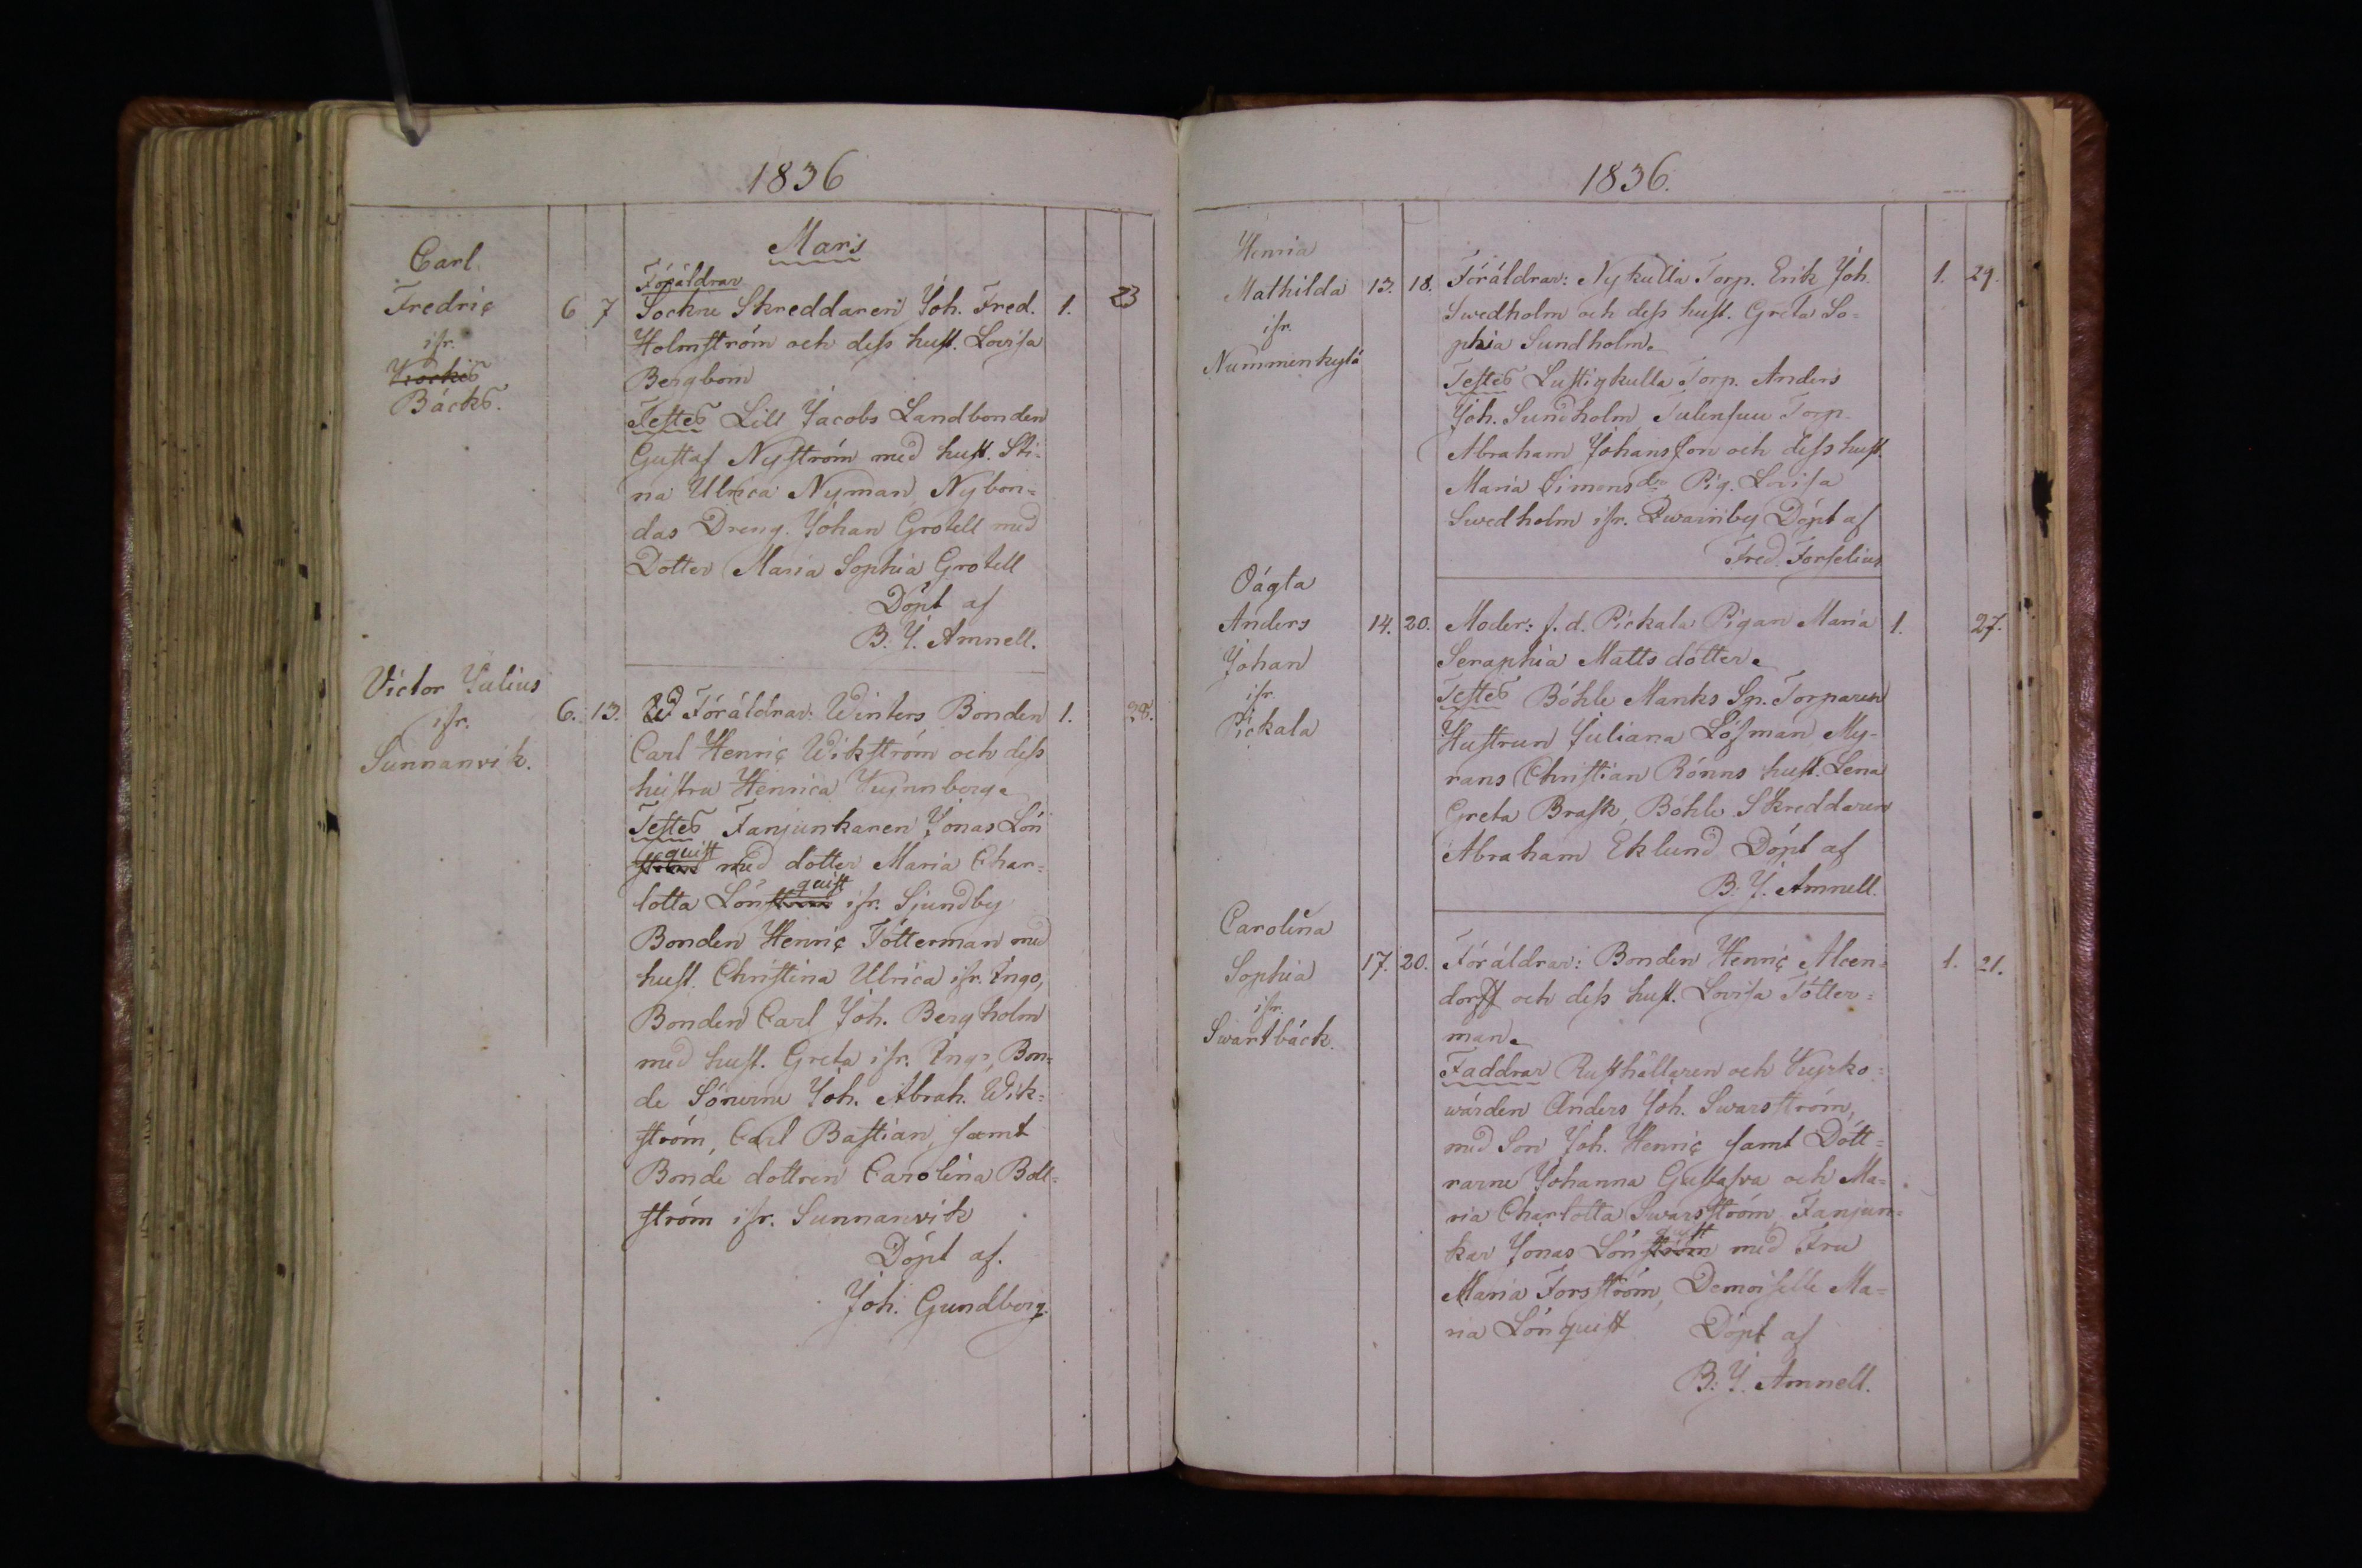 1836
Mars
Carl
Fredric
ifr.
Bäcks.
6 7
Föräldrar
Sockne Skreddaren Joh. Fred.
1. 23
Holmström och dess hust. Lovisa
Bergbom
Testes Lill Jacobs Landbonden
Gustaf Nyström med hust. Sti-
na Ulrica Nyman, Nybon=
das Dreng. Johan Grotell med
Dotter Maria Sophia Grotell
Döpt af
B. J. Amnell.
Victor Julius
ifr.
Sunnanvik.
6. 13.
Föräldrar: Winters Bonden
1. 28.
Carl Henric Wikström och dess
hustru Henrica Kynnberg.
Testes Fanjunkaren Jonas Lön
quist med dotter Maria Char=
lotta Lönquist ifr. Sjundby
Bonden Henric Tötterman med
hust. Christina Ulrica ifr. Ingo,
Bonden Carl Joh. Bergholm
med hust. Greta ifr. Ingo, Bon=
de Sönerne Joh. Abrah. Wik=
ström, Carl Bastian, samt
Bonde dottren Carolina Boll=
ström ifr. Sunnanvik
Döpt af.
Joh. Gundberg.
1836.
Henrica
Mathilda
ifr.
Nummenkylä
13. 18.
Föräldrar: Nykulla Torp. Erik Joh.
1. 29.
Swedholm och dess hust. Greta So=
phia Sundholm.
Testes Lustigkulla Torp. Anders
Joh. Sundholm, Tulensuu Torp.
Abraham Johansson och dess hust.
Maria Simonsdr Pig. Lovisa
Swedholm ifr. Qwarnby Döpt af
Fred. Forselius
Oägta
Anders
Johan
ifr.
Pickala
14. 20.
Moder: f. d. Pickala Pigan Maria
1. 27.
Seraphia Mattsdotter.
Testes Böhle Manks Sp. Torparen
Hustrun Juliana Löfman, My-
rans Christian Rönns hust. Lena
Greta Brask, Böhle Skreddaren
Abraham Eklund Döpt af
B. J. Amnell.
Carolina
Sophia
ifr.
Swartbäck.
17. 20.
Föräldrar: Bonden Henric Alcen=
1. 21.
dorff och dess hust. Lovisa Tötter=
man.
Faddrar Rusthållaren och Kyrko=
wärden Anders Joh. Swarsström,
med Son Joh. Henric samt Dött=
rarne Johanna Gustafva och Ma=
ria Charlotta Swarsström, Fanjun=
kar Jonas Lönquist med Fru
Maria Forsström, Demoiselle Ma=
ria Lönquist Döpt af
B. J. Amnell.